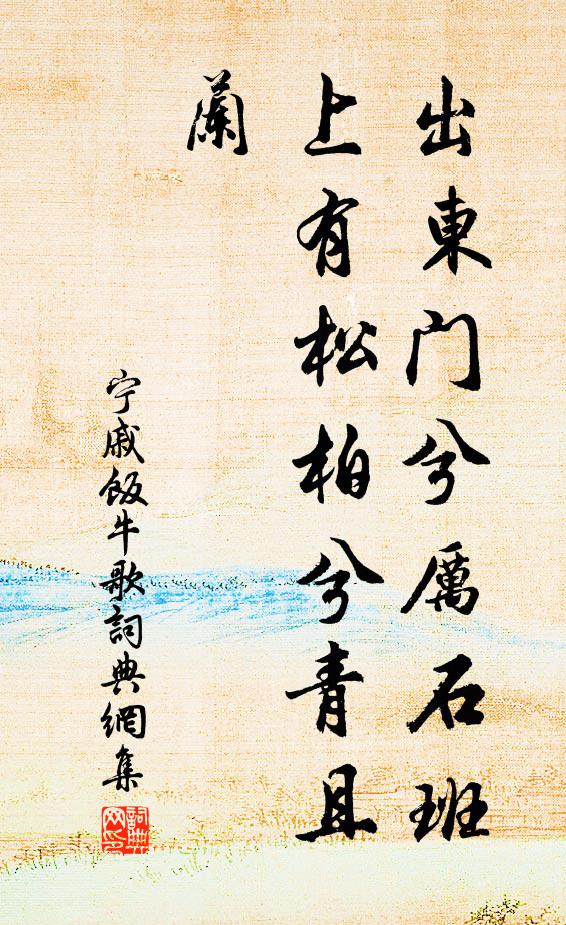 出東門兮厲石班
上有松柏兮青且
蘭
宁戚飯牛歌詞典網集
詞典网印